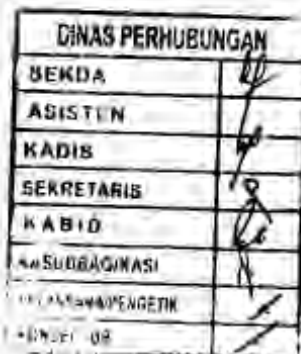 DINAS PERHUBUNGAN
SEKDA
ASISTEN
KADIS
SEKRETARIS
KABID
KASUBBAG/KASI